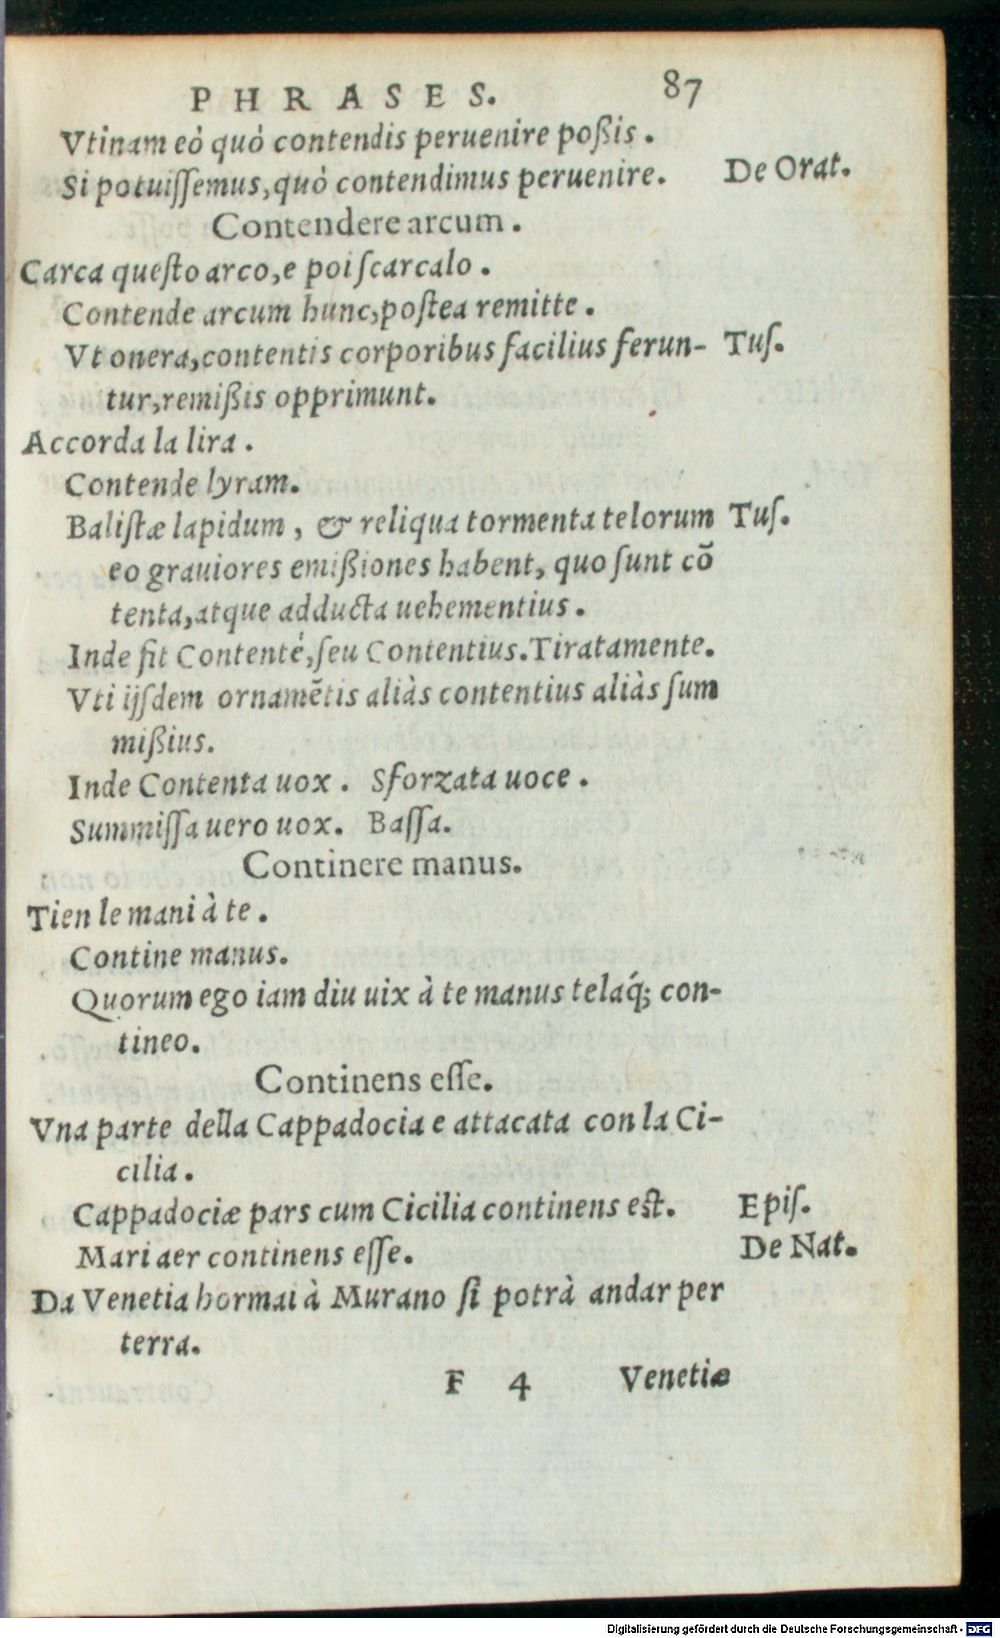 PHRASES. 87
Vtinam eò quò contendis peruenire poßis.
Si potuiſſemus, quò contendimus peruenire. De Orat.
Contendere arcum.
Carca queſto arco, e poi ſcarcalo.
Contende arcum hunc, poſtea remitte.
Vt onera, contentis corporibus facilius ferun- Tuſ.
tur, remißis opprimunt.
Accorda la lira.
Contende lyram.
Baliſtæ lapidum, & reliqua tormenta telorum Tuſ.
eo grauiores emißiones habent, quo ſunt cõ
tenta, atque adducta uehementius.
Inde fit Contentè, ſeu Contentius. Tiratamente.
Vti ijſdem ornamẽtis aliàs contentius aliàs ſum
mißius.
Inde Contenta uox. Sforzata uoce.
Summiſſa uero uox. Baſſa.
Continere manus.
Tien le mani à te.
Contine manus.
Quorum ego iam diu uix à te manus telaq́; con-
tineo.
Continens eſſe.
Vna parte della Cappadocia e attacata con la Ci-
cilia.
Cappadociæ pars cum Cicilia continens eſt. Epiſ.
Mari aer continens eſſe. De Nat.
Da Venetia hormai à Murano ſi potrà andar per
terra.
F 4 Venetiæ
Digitalisierung gefördert durch die Deutsche Forschungsgemeinschaft - DFG